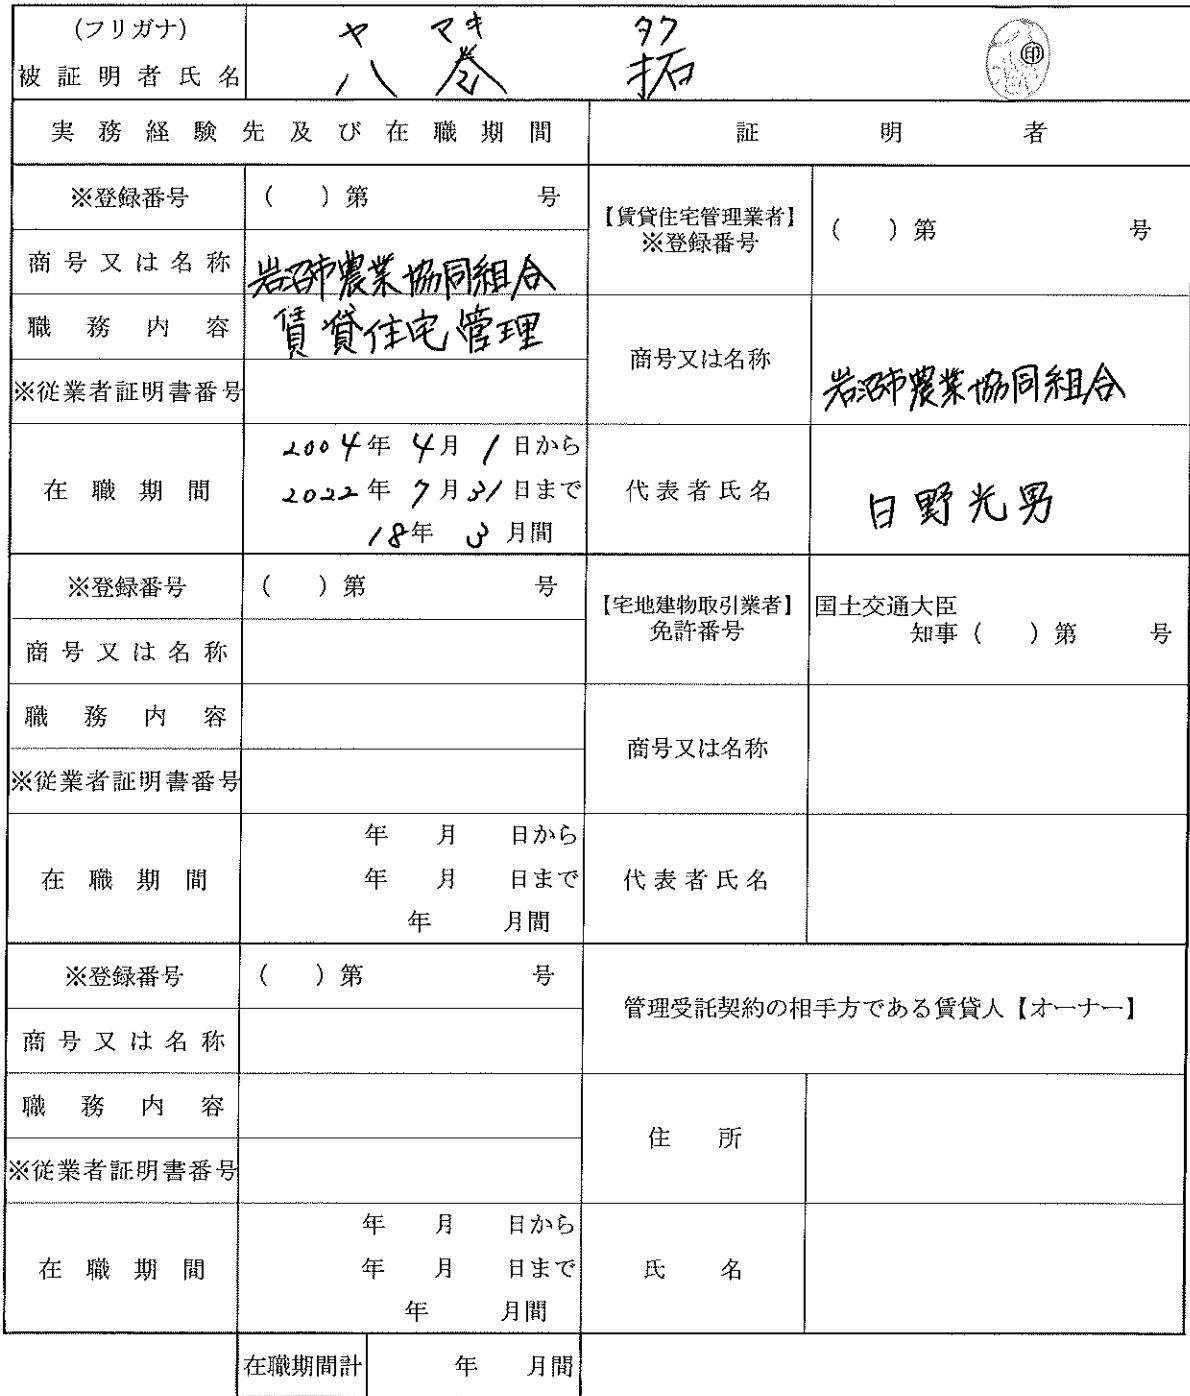 (フリガナ) ヤマキ タク
被証明者氏名 八巻 拓 印
実務経験先及び在職期間 証明者
※登録番号 ( )第 号
【賃貸住宅管理業者】
※登録番号 ( )第 号
商号又は名称 岩沼市農業協同組合
職務内容 賃貸住宅管理
商号又は名称 岩沼市農業協同組合
※従業者証明書番号
在職期間
2004年 4月 1日から
2022年 7月31日まで
18年 3月間
代表者氏名 日野光男
※登録番号 ( )第 号
【宅地建物取引業者】
免許番号
国土交通大臣
知事( )第 号
商号又は名称
職務内容
商号又は名称
※従業者証明書番号
在職期間
年 月 日から
年 月 日まで
年 月間
代表者氏名
※登録番号 ( )第 号
管理受託契約の相手方である賃貸人【オーナー】
商号又は名称
職務内容
住所
※従業者証明書番号
在職期間
年 月 日から
年 月 日まで
年 月間
氏名
在職期間計 年 月間